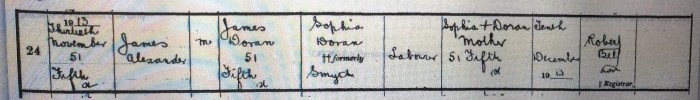 24
1913
Thirtieth
November
51
Fifth
St
James
Alexander
M
James
Doran
51
Fifth
St
Sophia
Doran
formerly
Smyth
Labourer
Sophia Doran
Mother
51 Fifth
St
Tenth
December
1913
Robert
Registrar.